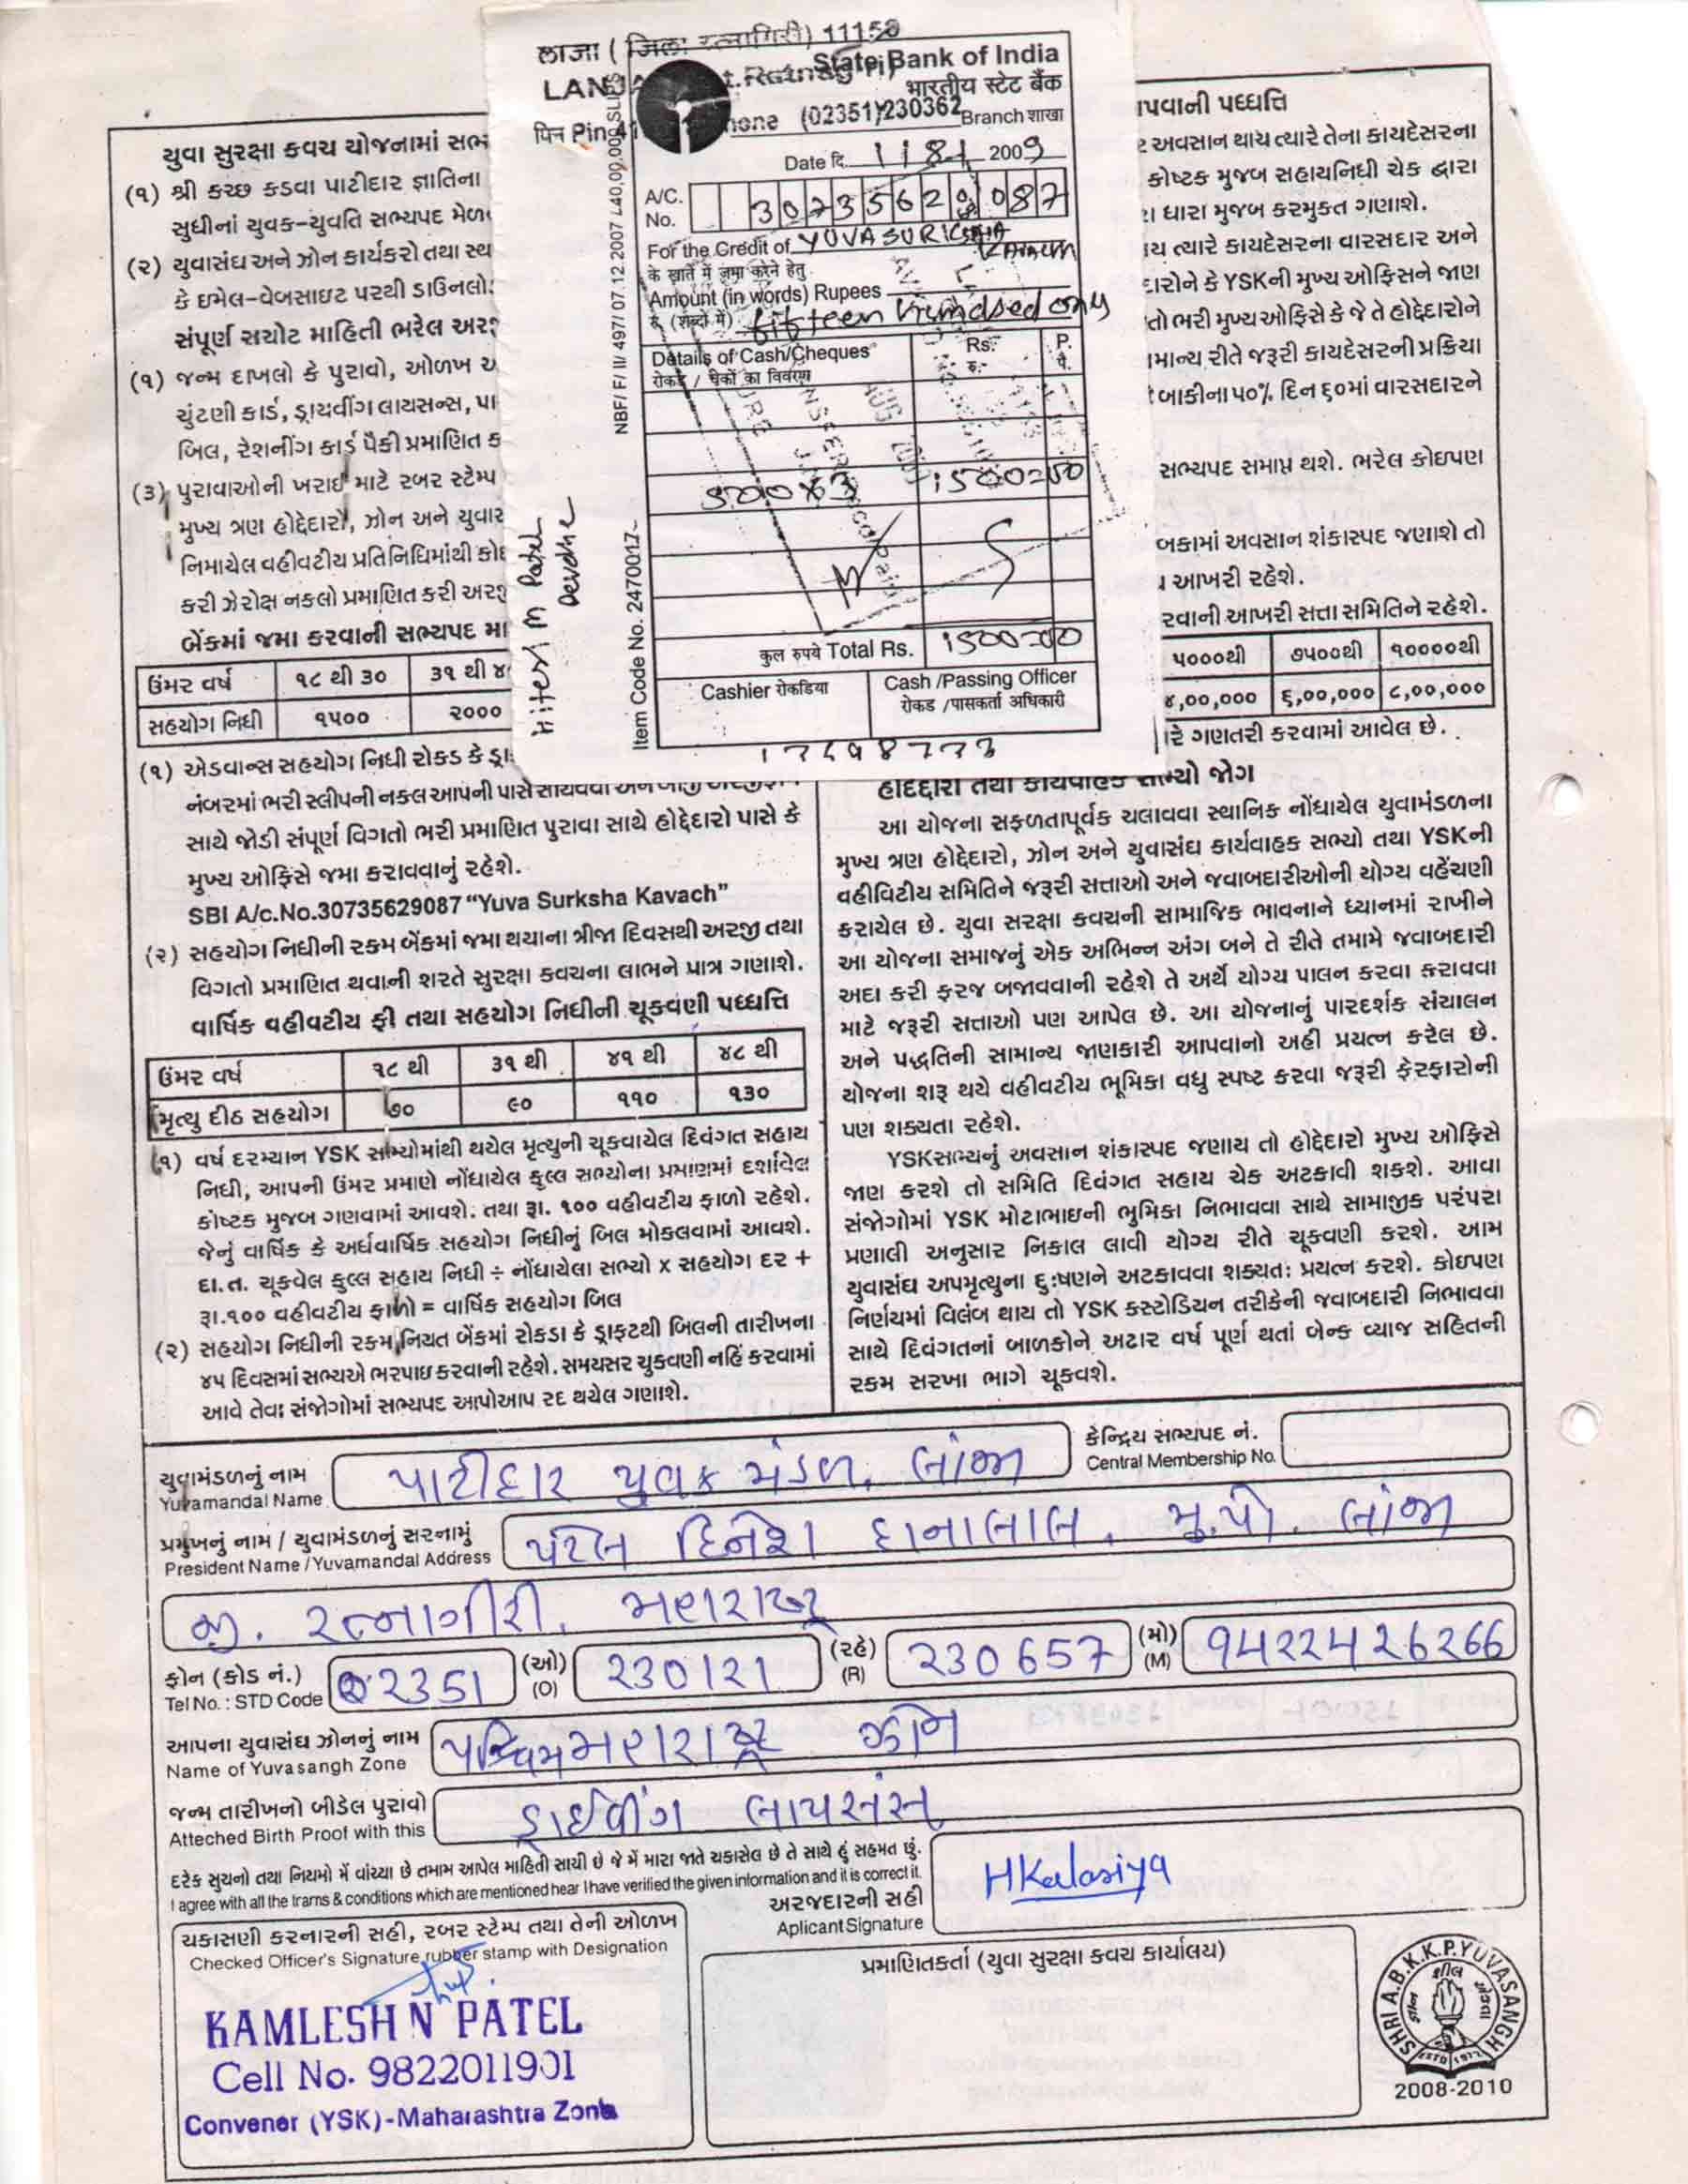 लाजा ( जिला रत्नागिरी) 11158
State Bank of India
भारतीय स्टेट बैंक
पिन Pin
(02351) 230362
Branch शाखा
Date दि. 1 8 2009
A/C. No. 30735629087
For the Credit of YUVA SURICSHA
KAVACH
के खाते में जमा करने हेतु
Amount (in words) Rupees
रु (शब्दों में) fifteen hundsed only
Details of Cash/Cheques Rs. P.
रोकड / चेकों का विवरण रु. पै.
500x3 1500=00
कुल रुपये Total Rs. 1500=00
Cashier रोकडिया
Cash /Passing Officer
रोकड /पासकर्ता अधिकारी
NBF/ F/ II/ 497/ 07.12.2007
Item Code No. 2470017
Hitesh M Patel
Devdhe
યુવા સુરક્ષા કવચ યોજનામાં સભ
(૧) શ્રી કચ્છ કડવા પાટીદાર જ્ઞાતિના
સુધીનાં યુવક-યુવતિ સભ્યપદ મેળ
(૨) યુવાસંઘ અને ઝોન કાર્યકરો તથા સ્થ
કે ઇમેલ-વેબસાઇટ પરથી ડાઉનલો
સંપૂર્ણ સચોટ માહિતી ભરેલ અર
(૧) જન્મ દાખલો કે પુરાવો, ઓળખ
ચુંટણી કાર્ડ, ડ્રાયવીંગ લાયસન્સ, પા
બિલ, રેશનીંગ કાર્ડ પૈકી પ્રમાણિત ક
(૩) પુરાવાઓની ખરાઇ માટે રબર સ્ટેમ્પ
મુખ્ય ત્રણ હોદ્દેદારો, ઝોન અને યુવાર
નિમાયેલ વહીવટીય પ્રતિનિધિમાંથી કોઇ
કરી ઝેરોક્ષ નકલો પ્રમાણિત કરી અર
બેંકમાં જમા કરવાની સભ્યપદ મા
ઉંમર વર્ષ ૧૮ થી ૩૦ ૩૧ થી ૪
સહયોગ નિધી ૧૫૦૦ ૨૦૦૦
(૧) એડવાન્સ સહયોગ નિધી રોકડ કે ડ્રા
નંબરમાં ભરી સ્લીપની નકલ આપની પાસે
સાથે જોડી સંપૂર્ણ વિગતો ભરી પ્રમાણિત પુરાવા સાથે હોદ્દેદારો પાસે કે
મુખ્ય ઓફિસે જમા કરાવવાનું રહેશે.
SBI A/c.No.30735629087 “Yuva Surksha Kavach”
(૨) સહયોગ નિધીની રકમ બેંકમાં જમા થયાના ત્રીજા દિવસથી અરજી તથા
વિગતો પ્રમાણિત થવાની શરતે સુરક્ષા કવચના લાભને પાત્ર ગણાશે.
વાર્ષિક વહીવટીય ફી તથા સહયોગ નિધીની ચૂકવણી પધ્ધતિ
ઉંમર વર્ષ ૧૮ થી ૩૧ થી ૪૧ થી ૪૮ થી
મૃત્યુ દીઠ સહયોગ ૭૦ ૯૦ ૧૧૦ ૧૩૦
(૧) વર્ષ દરમ્યાન YSK સભ્યોમાંથી થયેલ મૃત્યુની ચૂકવાયેલ દિવંગત સહાય
નિધી, આપની ઉંમર પ્રમાણે નોંધાયેલ કુલ્લ સભ્યોના પ્રમાણમાં દર્શાવેલ
કોષ્ટક મુજબ ગણવામાં આવશે. તથા રૂા. ૧૦૦ વહીવટીય ફાળો રહેશે.
જેનું વાર્ષિક કે અર્ધવાર્ષિક સહયોગ નિધીનું બિલ મોકલવામાં આવશે.
દા.ત. ચૂકવેલ કુલ્લ સહાય નિધી ÷ નોંધાયેલા સભ્યો x સહયોગ દર +
રૂા.૧૦૦ વહીવટીય ફાળો = વાર્ષિક સહયોગ બિલ
(૨) સહયોગ નિધીની રકમ નિયત બેંકમાં રોકડા કે ડ્રાફટથી બિલની તારીખના
૪૫ દિવસમાં સભ્યએ ભરપાઇ કરવાની રહેશે. સમયસર ચુકવણી નહિં કરવામાં
આવે તેવા સંજોગોમાં સભ્યપદ આપોઆપ રદ થયેલ ગણાશે.
પવાની પધ્ધતિ
અવસાન થાય ત્યારે તેના કાયદેસરના
કોષ્ટક મુજબ સહાયનિધી ચેક દ્વારા
ધારા મુજબ કરમુકત ગણાશે.
ય ત્યારે કાયદેસરના વારસદાર અને
દારોને કે YSKની મુખ્ય ઓફિસને જાણ
તો ભરી મુખ્ય ઓફિસે કે જે તે હોદ્દેદારોને
મામાન્ય રીતે જરૂરી કાયદેસરની પ્રક્રિયા
બાકીના ૫૦% દિન ૬૦માં વારસદારને
સભ્યપદ સમાપ્ત થશે. ભરેલ કોઇપણ
બકામાં અવસાન શંકાસ્પદ જણાશે તો
આખરી રહેશે.
રવાની આખરી સત્તા સમિતિને રહેશે.
૫૦૦૦થી ૭૫૦૦થી ૧૦૦૦૦થી
૪,૦૦,૦૦૦ ૬,૦૦,૦૦૦ ૮,૦૦,૦૦૦
રે ગણતરી કરવામાં આવેલ છે.
હોદ્દેદારો તથા કાર્યવાહક સભ્યો જોગ
આ યોજના સફળતાપૂર્વક ચલાવવા સ્થાનિક નોંધાયેલ યુવામંડળના
મુખ્ય ત્રણ હોદ્દેદારો, ઝોન અને યુવાસંઘ કાર્યવાહક સભ્યો તથા YSKની
વહીવિટીય સમિતિને જરૂરી સત્તાઓ અને જવાબદારીઓની યોગ્ય વહેંચણી
કરાયેલ છે. યુવા સરક્ષા કવચની સામાજિક ભાવનાને ધ્યાનમાં રાખીને
આ યોજના સમાજનું એક અભિન્ન અંગ બને તે રીતે તમામે જવાબદારી
અદા કરી ફરજ બજાવવાની રહેશે તે અર્થે યોગ્ય પાલન કરવા કરાવવા
માટે જરૂરી સત્તાઓ પણ આપેલ છે. આ યોજનાનું પારદર્શક સંચાલન
અને પદ્ધતિની સામાન્ય જાણકારી આપવાનો અહી પ્રયત્ન કરેલ છે.
યોજના શરૂ થયે વહીવટીય ભૂમિકા વધુ સ્પષ્ટ કરવા જરૂરી ફેરફારોની
પણ શક્યતા રહેશે.
YSKસભ્યનું અવસાન શંકાસ્પદ જણાય તો હોદ્દેદારો મુખ્ય ઓફિસે
જાણ કરશે તો સમિતિ દિવંગત સહાય ચેક અટકાવી શકશે. આવા
સંજોગોમાં YSK મોટાભાઇની ભુમિકા નિભાવવા સાથે સામાજીક પરંપરા
પ્રણાલી અનુસાર નિકાલ લાવી યોગ્ય રીતે ચૂકવણી કરશે. આમ
યુવાસંઘ અપમૃત્યુના દુ:ષણને અટકાવવા શક્યત: પ્રયત્ન કરશે. કોઇપણ
નિર્ણયમાં વિલંબ થાય તો YSK કસ્ટોડિયન તરીકેની જવાબદારી નિભાવવા
સાથે દિવંગતનાં બાળકોને અઢાર વર્ષ પૂર્ણ થતાં બેન્ક વ્યાજ સહિતની
રકમ સરખા ભાગે ચૂકવશે.
યુવામંડળનું નામ પાટીદાર યુવક મંડળ, લાંજા કેન્દ્રિય સભ્યપદ નં.
Yuvamandal Name Central Membership No.
પ્રમુખનું નામ / યુવામંડળનું સરનામું પટેલ દિનેશ દાનાલાલ, મુ.પો. લાંજા
President Name / Yuvamandal Address
જી. રત્નાગીરી, મહારાષ્ટ્ર
ફોન (કોડ નં.) 02351 (ઓ) 230121 (રહે) 230657 (મો) 9422426266
Tel No. : STD Code (O) (R) (M)
આપના યુવાસંઘ ઝોનનું નામ પશ્ચિમ મહારાષ્ટ્ર ઝોન
Name of Yuvasangh Zone
જન્મ તારીખનો બીડેલ પુરાવો ડ્રાઈવીંગ લાયસંસ
Atteched Birth Proof with this
દરેક સુચનો તથા નિયમો મેં વાંચ્યા છે તમામ આપેલ માહિતી સાચી છે જે મેં મારા જાતે ચકાસેલ છે તે સાથે હું સહમત છું.
I agree with all the trarns & conditions which are mentioned hear I have verified the given information and it is correct it.
અરજદારની સહી HKalasiya
Aplicant Signature
ચકાસણી કરનારની સહી, રબર સ્ટેમ્પ તથા તેની ઓળખ
Checked Officer's Signature, rubber stamp with Designation
KAMLESH N PATEL
Cell No. 9822011901
Convener (YSK)-Maharashtra Zone
પ્રમાણિતકર્તા (યુવા સુરક્ષા કવચ કાર્યાલય)
SHRI A.B.K.K.P. YUVASANGH
2008-2010